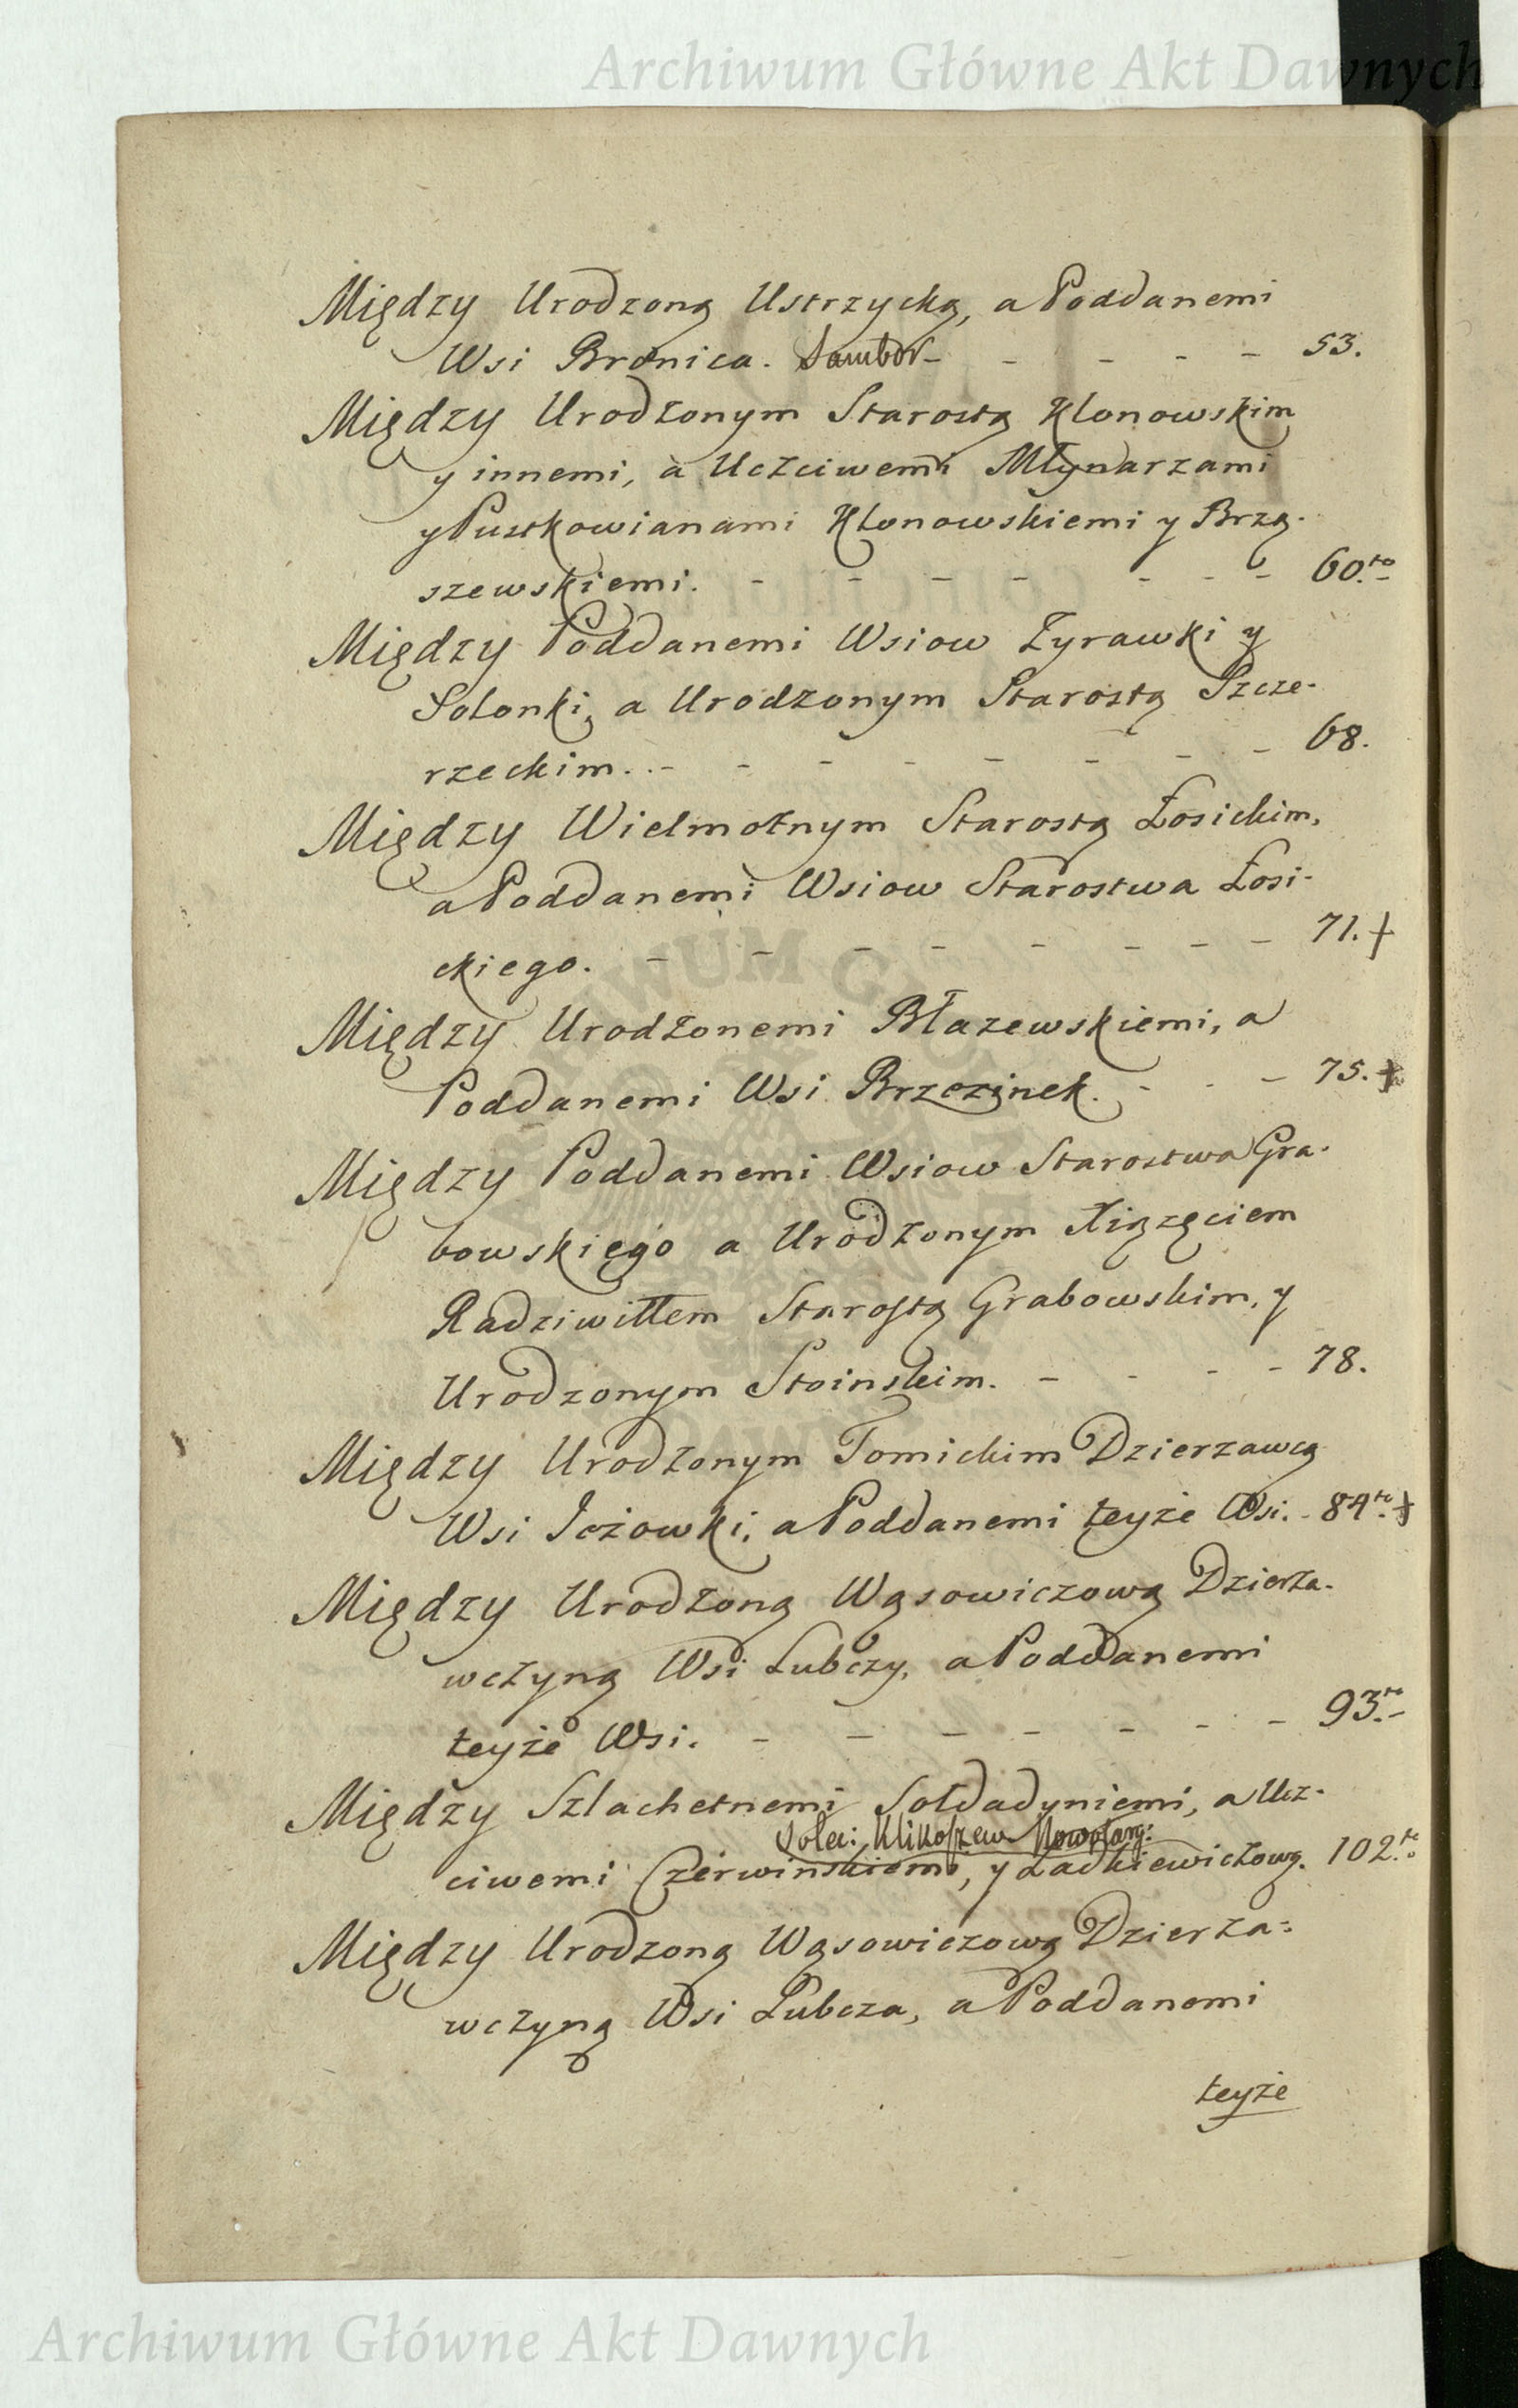 Archiwum Główne Akt Dawnych
Między Urodzoną Ustrzycką, a Poddanemi
Wsi Bronica. Sambor - - - - - 53.
Między Urodzonym Starostą Klonowskim
y innemi, a Uczciwemi Młynarzami
y Pustkowianami Klonowskiemi y Brzą-
szewskiemi. - - - - - - - 60.to
Między Poddanemi Wsiow Zyrawki y
Solonki, a Urodzonym Starostą Szcze-
rzeckim. - - - - - - - - 68.
Między Wielmożnym Starostą Łosickim,
a Poddanemi Wsiow Starostwa Łosi-
ckiego. - - - - - - - - 71. +
Między Urodzonemi Błazewskiemi, a
Poddanemi Wsi Brzezinek. - - - 75. +
Między Poddanemi Wsiow Starostwa Gra-
bowskiego a Urodzonym Xiążęciem
Radziwiłłem Starostą Grabowskim, y
Urodzonym Stoinskim. - - - - 78.
Między Urodzonym Tomickim Dzierzawcą
Wsi Jeżowki, a Poddanemi teyże Wsi. - 84.to +
Między Urodzoną Wąsowiczową Dzierża-
wczyną Wsi Lubczy, a Poddanemi
teyże Wsi. - - - - - - - 93.to
Między Szlachetnemi Soldadyniemi, a Ucz-
Solec: Klikoszew Nowotarg:
ciwemi Czerwinskiemi, y Ladkiewiczową. 102.to
Między Urodzoną Wąsowiczową Dzierża-
wczyną Wsi Lubcza, a Poddanemi
teyże
Archiwum Główne Akt Dawnych